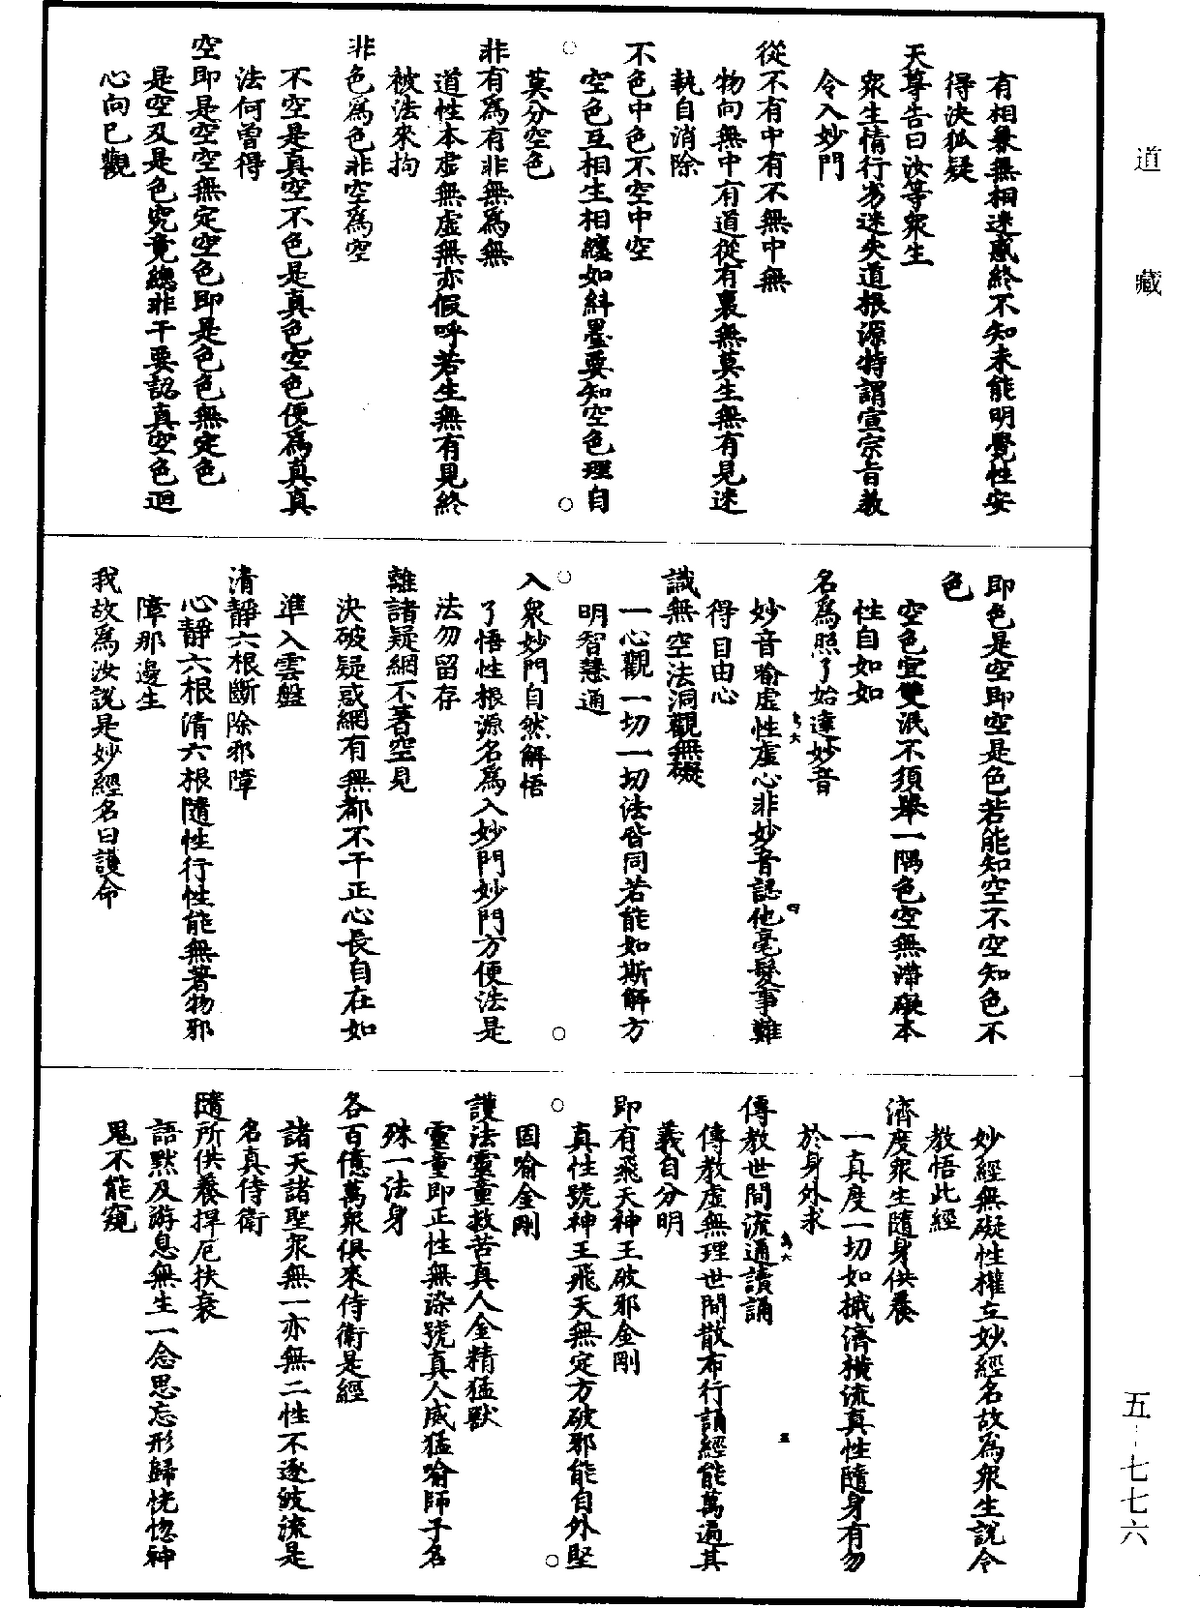 道藏
有相無無相迷惑終不知未能明覺性安
得決狐疑
天尊告曰汝等衆生
衆生情行劣迷失道根源特謂宣宗旨教
令入妙門
從不有中有不無中無
物向無中有道從有裏無莫生無有見迷
執自消除
不色中色不空中空
空色互相生相纏如糾墨要知空色理自
莫分空色
非有爲有非無爲無
道性本虛無虛無亦假呼若生無有見終
被法來拘
非色爲色非空爲空
不空是真空不色是真色空色便爲真真
法何曾得
空即是空空無定空色即是色色無定色
是空及是色究竟總非干要認真空色迴
心向已觀
即色是空即空是色若能知空不空知色不
色
空色宜雙泯不須舉一隅色空無滯礙本
性自如如
名爲照了始達妙音
妙音喻虛性虛心非妙音認他毫髮事難
得自由心
識無空法洞觀無礙
一心觀一切一切法皆同若能如斯解方
明智慧通
入衆妙門自然解悟
了悟性根源名爲入妙門妙門方便法是
法勿留存
離諸疑網不著空見
決破疑惑網有無都不干正心長自在如
準入雲盤
清靜六根斷除邪障
心靜六根清六根隨性行性能無著物邪
障那邊生
我故爲汝說是妙經名曰護命
妙經無礙性權立妙經名故爲衆生說令
教悟此經
濟度衆生隨身供養
一真度一切如撼濟橫流真性隨身有勿
於身外求
傳教世間流通讀誦
傳教虛無理世間散布行誦經能萬遍其
義自分明
即有飛天神王破邪金剛
真性號神王飛天無定方破邪能自外堅
固喻金剛
護法靈童救苦真人金精猛獸
靈童即正性無染號真人威猛喻師子名
殊一法身
各百億萬衆俱來侍衛是經
諸天諸聖衆無一亦無二性不逐波流是
名真侍衛
隨所供養捍厄扶衰
語默及游息無生一念思忘形歸恍惚神
鬼不能窺
五--七七六